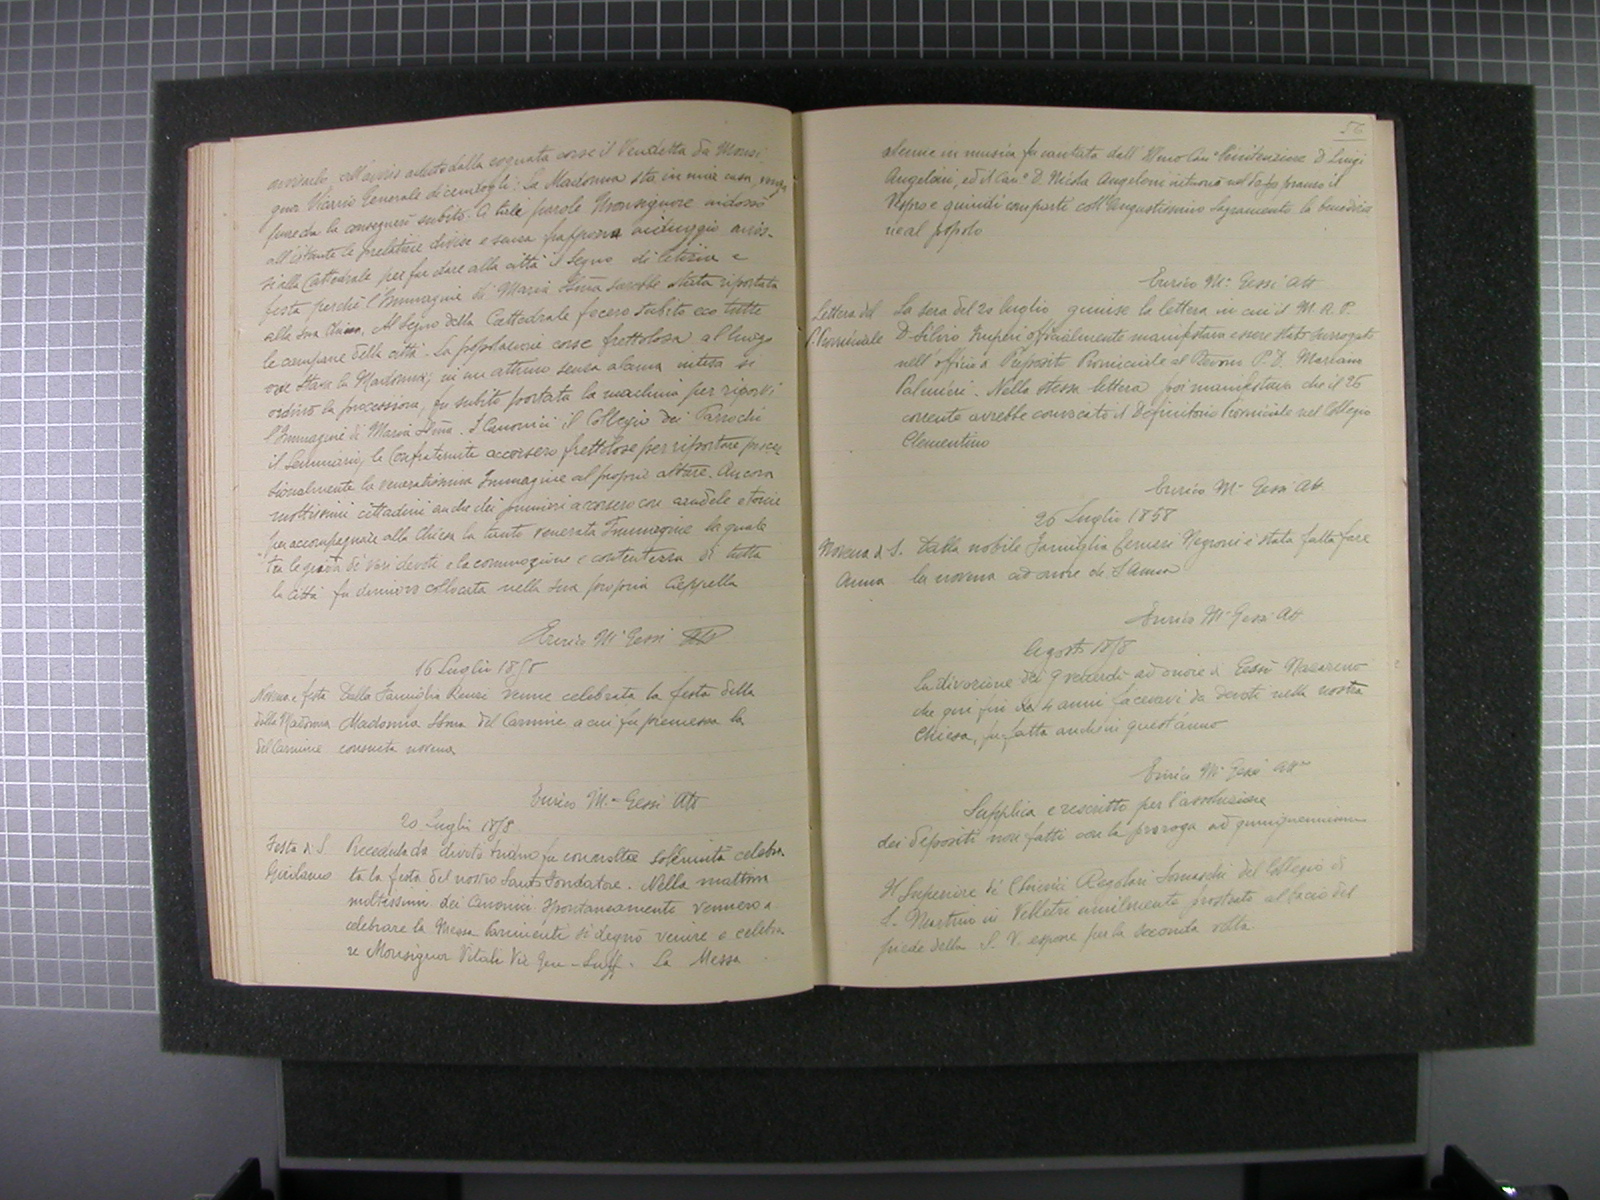 avvisarlo all'avviso avuto dalla cognata corse il Vendetta da Monsi-
gnor Vicario Generale dicendogli: la Madonna sta in mia casa, venga
pure che la consegnerò subito. A tale parole Monsignore indossò
all'istante le prelatizie divise e senza frapporre indugio avvis-
si alla Cattedrale per far dare alla città il segno di letizia e
festa perchè l'Immagine di Maria SSma sarebbe stata riportata
alla sua Chiesa. Al segno della Cattedrale fecero subito eco tutte
le campane della città. La popolazione corse frettolosa al luogo
ove stava la Madonna; in un attimo senza alcuna intesa si
ordinò la processione, fu subito portata la macchina per riporvi
l'Immagine di Maria SSma. I Canonici il Collegio dei Parrochi
il Seminario, le Confraternite accorsero frettolose per riportare proces
sionalmente la veneratissima Immagine al proprio altare. Ancora
moltissimi cittadini anche dei primieri accorsero con candele e torcie
per accompagnare alla Chiesa la tanto venerata Immagine la quale
tra le grida di vari devoti e la commozione e contentezza di tutta
la Città fu di nuovo collocata nella sua propria Cappella
Enrico M.a Gessi Att
16 Luglio 1858
Novena e festa Dalla Famiglia Renzi venne celebrata la festa della
della Madonna Madonna SSma del Carmine a cui fu premessa la
del Carmine consueta novena
Enrico M.a Gessi Att
20 Luglio 1858
Festa di S. Preceduta da divoto triduo fu con molta solennità celebra
Girolamo ta la festa del nostro Santo Fondatore. Nella mattina
moltissimi dei Canonici spontaneamente vennero a
celebrare la Messa Parimenti si degnò venire a celebra
re Monsignor Vitali Vic Gen - Suff. La Messa
56
solenne in musica fu cantata dall'Illmo Can.o Penitenziere D. Luigi
Angeloni, ed il Can.o D. Nicola Angeloni intuonò nel dopo pranzo il
Vespro e quindi compartì coll'Augustissimo Sagramento la benedizio
ne al popolo
Enrico M.a Gessi Att
Lettera del La sera del 20 luglio giunse la lettera in cui il M. R. P.
P. Provinciale D. Silvio Imperi officialmente manifestava essere stato surrogato
nell'officio di Preposito Provinciale al Revmo P. D. Mariano
Palmieri. Nella stessa lettera poi manifestava che il 26
corrente avrebbe convocato il Definitorio Provinciale nel Collegio
Clementino
Enrico M.a Gessi Att.
26 Luglio 1858
Novena di S. Dalla nobile Famiglia Negroni è stata fatta fare
Anna la novena ad onore di S. Anna
Enrico M.a Gessi Att
Agosto 1858
La divozione dei 9 venerdì ad onore di Gesù Nazareno
che già fin da 4 anni facevasi da devoti nella nostra
Chiesa, fu fatta anche in quest'anno
Enrico M.a Gessi Att.
Supplica e rescritto per l'assoluzione
dei depositi non fatti con la proroga ad quinquennium
Il Superiore de' Chierici Regolari Somaschi del Collegio di
S. Martino in Velletri umilmente prostrato al bacio del
piede della S. V. espone per la seconda volta